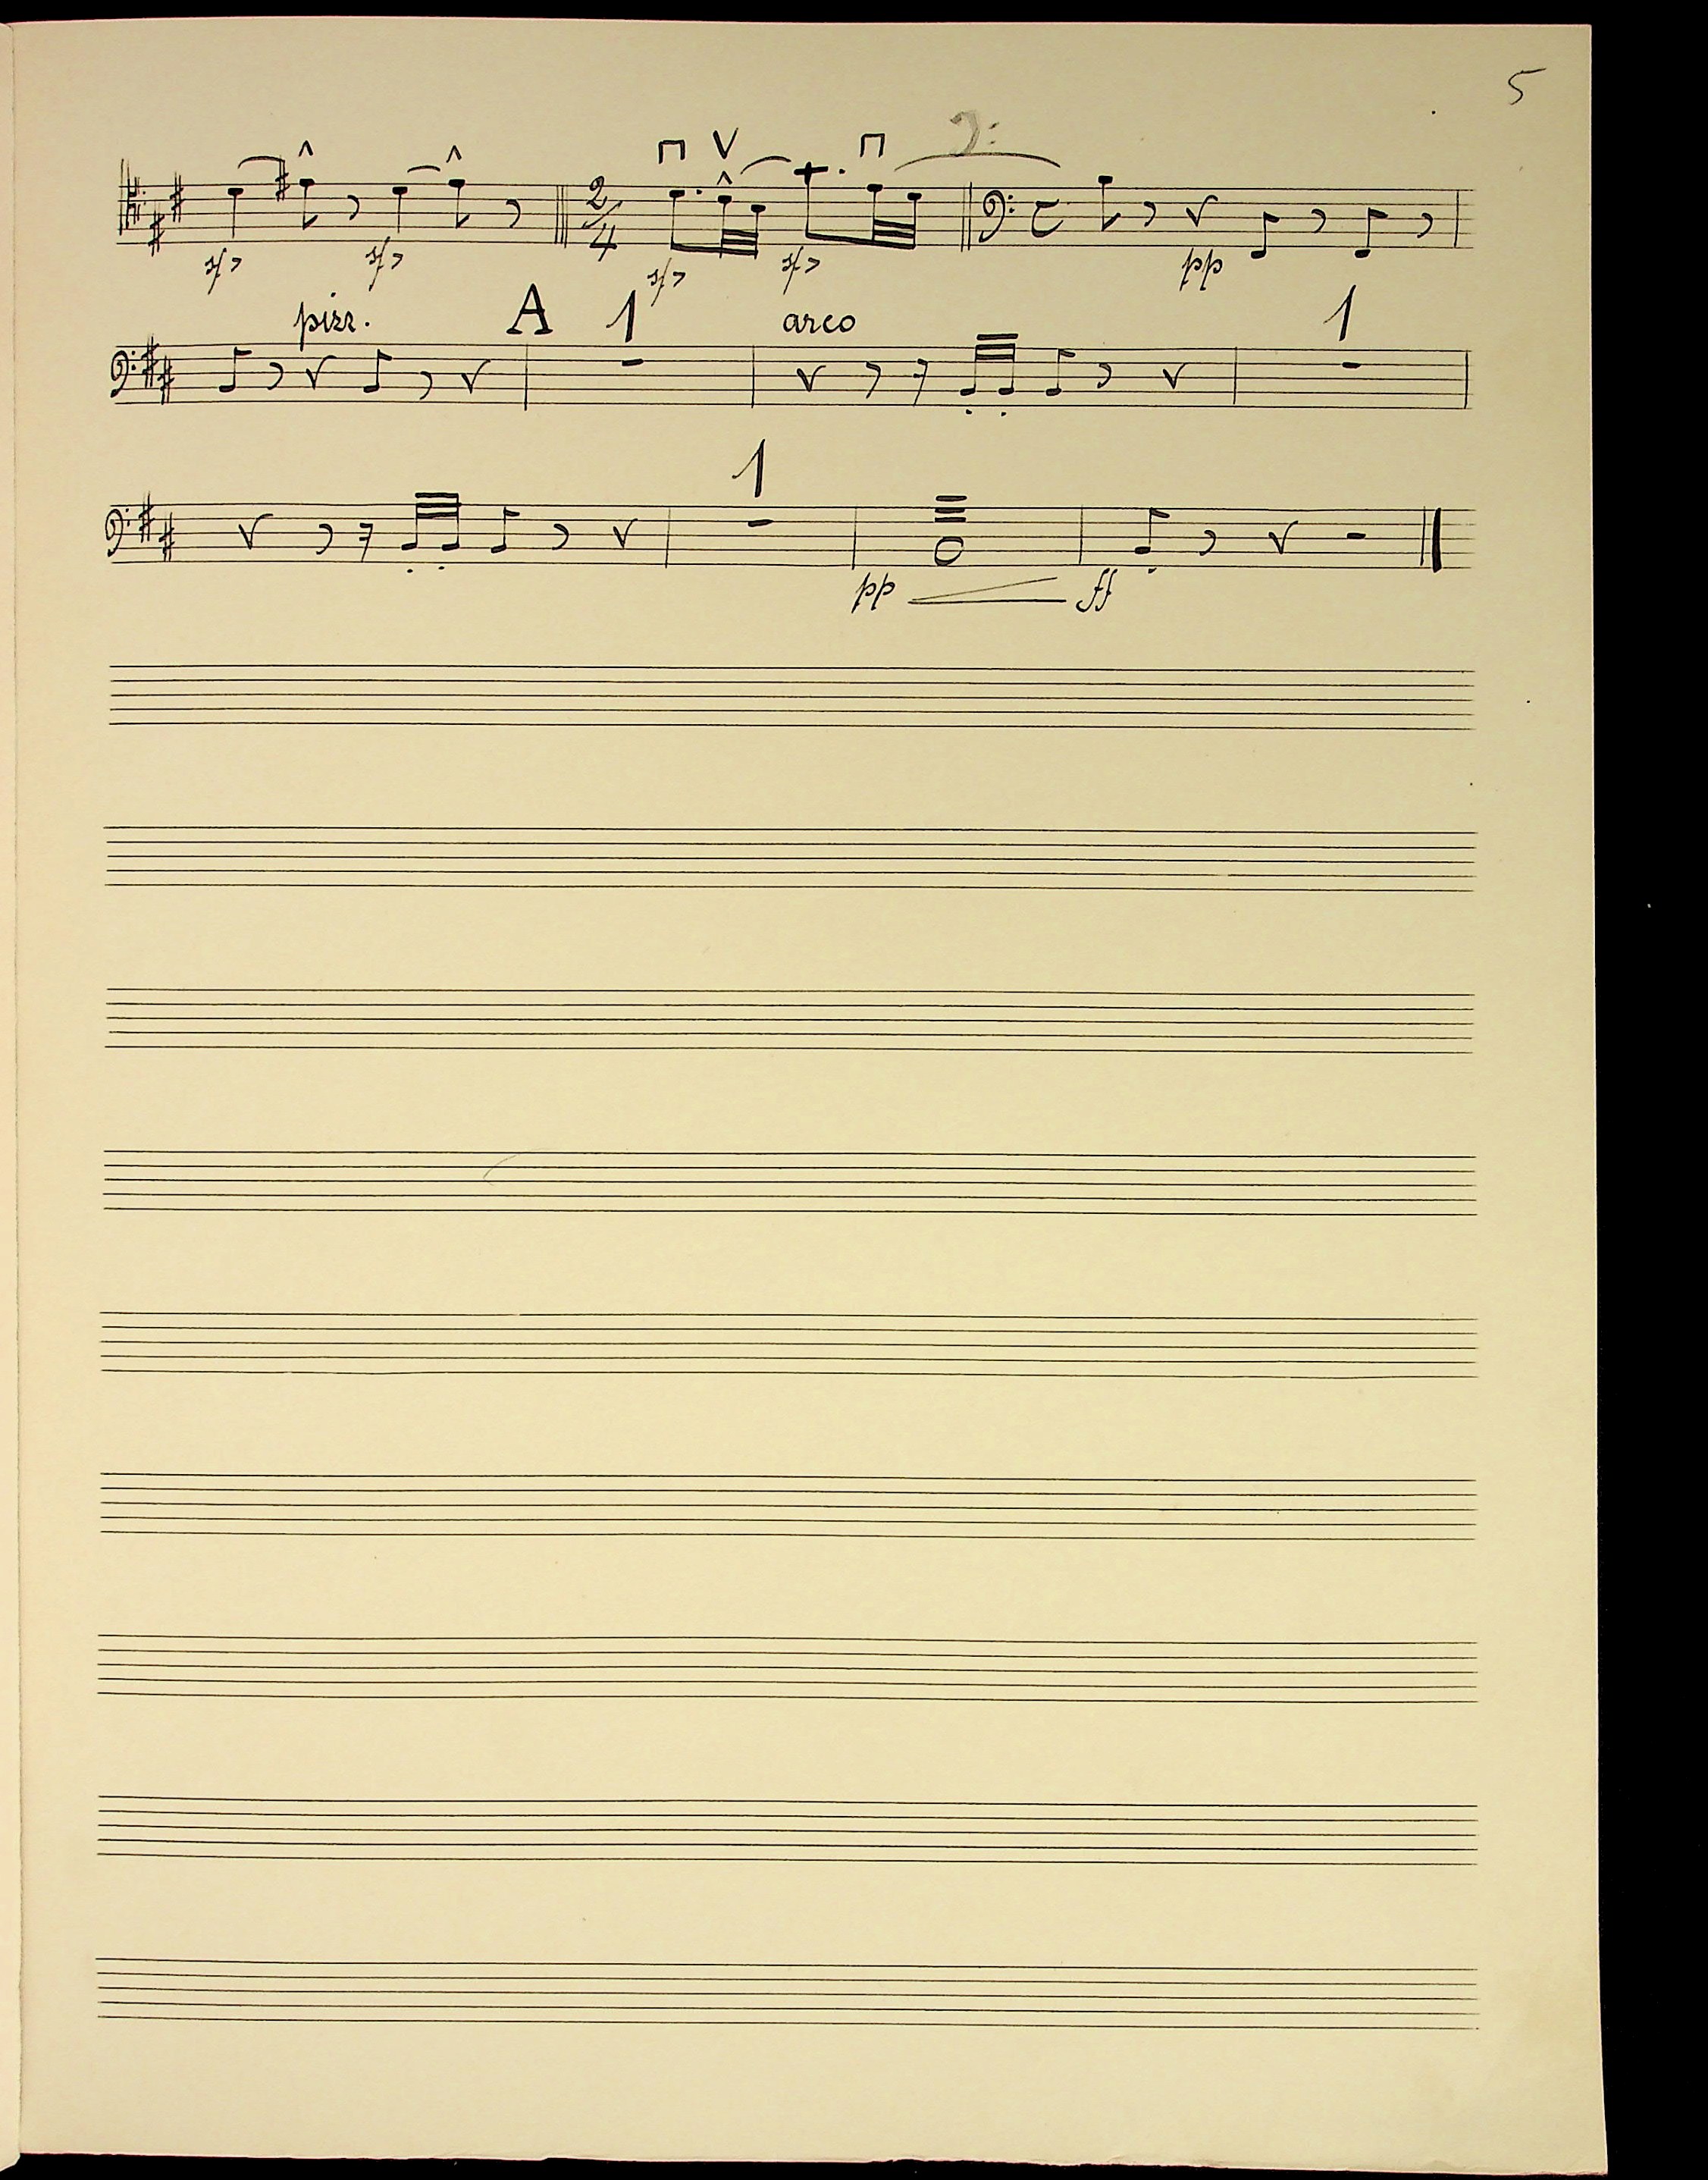 5
sf> sf> 2/4 sf> sf> pp
pizz. A 1 arco 1
1
pp ff